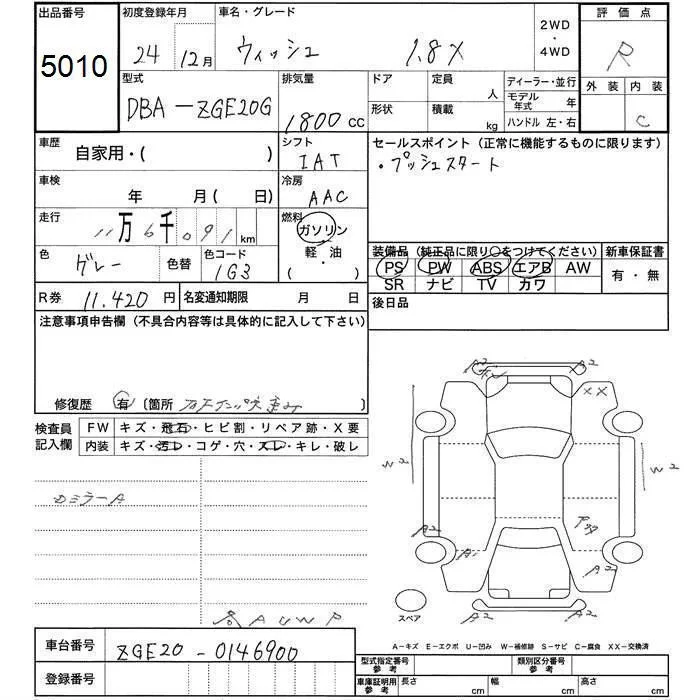 出品番号 初度登録年月 車名・グレード 2WD・4WD 評価点
5010 24 12月 ウィッシュ 1.8X R
型式 排気量 ドア 定員 人 ディーラー・並行 外装 内装
DBA-ZGE20G 1800cc 形状 積載 kg モデル年式 年 C
ハンドル 左・右
車歴 自家用・( ) シフト IAT セールスポイント(正常に機能するものに限ります)
・プッシュスタート
車検 年 月( 日) 冷房 AAC
走行 11万6千091km 燃料 ガソリン 軽・油 ( ・ )
色 グレー 色替 色コード 1G3
装備品(純正品に限り○をつけてください) 新車保証書
PS PW ABS エアB AW 有・無
SR ナビ TV カワ
R券 11,420円 名変通知期限 月 日 後日品
注意事項申告欄(不具合内容等は具体的に記入して下さい)
修復歴 有 〔箇所 〕
検査員記入欄 FW キズ・飛石・ヒビ割・リペア跡・X要
内装 キズ・汚レ・コゲ・穴・スレ・キレ・破レ
ミラーA
A2 A2
XX
W2 W2
A2 A A2
A2 A2
スペア
AUWP
A-キズ E-エクボ U-凹み W-補修跡 S-サビ C-腐食 XX-交換済
車台番号 ZGE20-0146900
登録番号
型式指定番号 参考 類別区分番号 参考
車庫証明用 参考 長さ cm 幅 cm 高さ cm